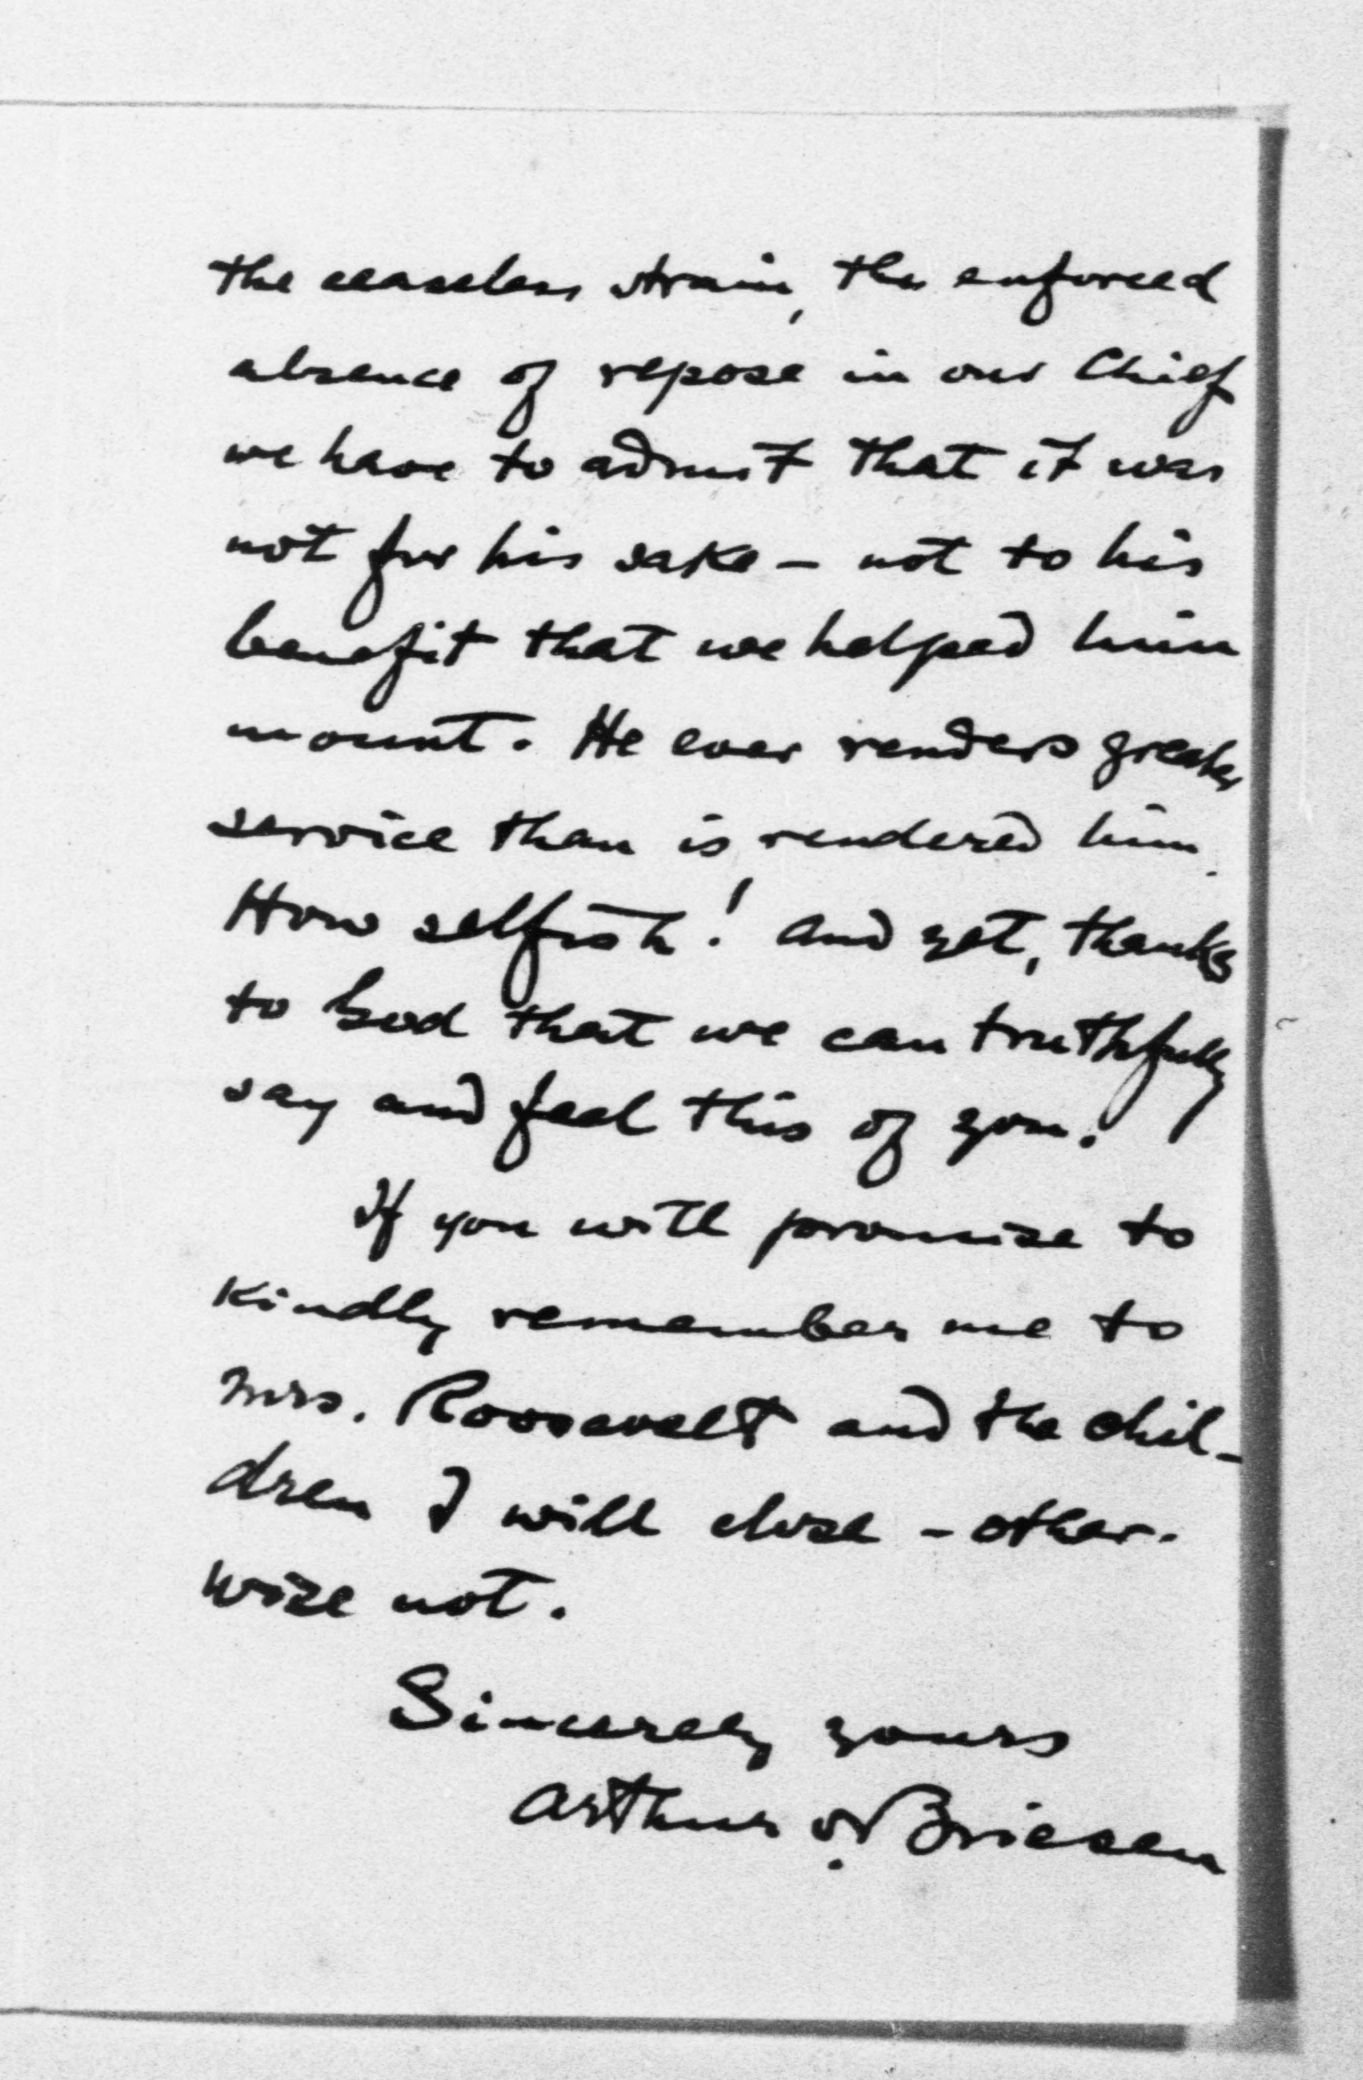 the ceaseless strain, the enforced
absence of repose in our Chief
we have to admit that it was
not for his sake – not to his
benefit that we helped him
mount. He ever renders greater
service than is rendered him.
How selfish! And yet, thanks
to God that we can truthfully
say and feel this of you.
If you will promise to
kindly remember me to
Mrs. Roosevelt and the chil-
dren I will close – other-
wise not.
Sincerely yours
Arthur v. Briesen